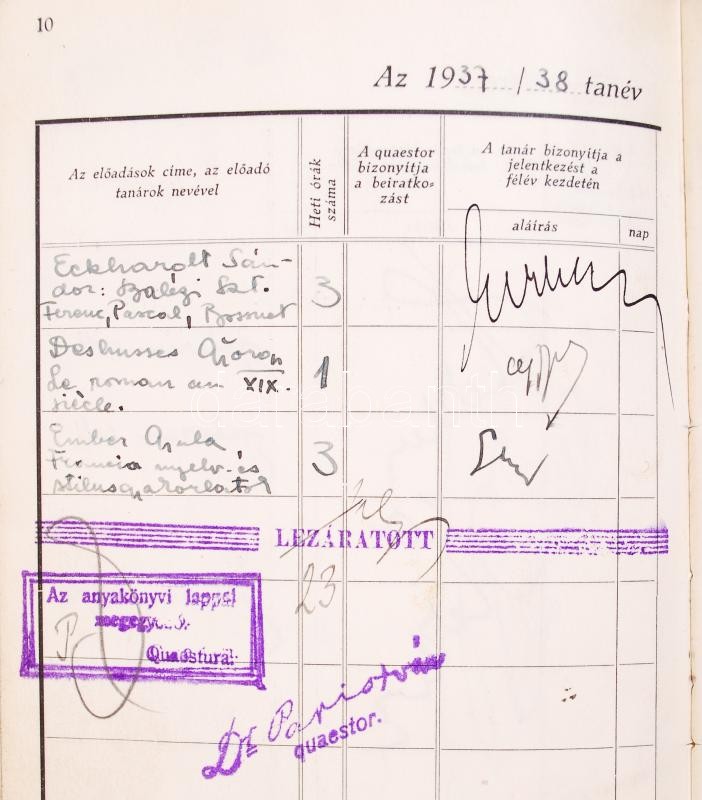 10
Az 1937 / 38 tanév
Az előadások címe, az előadó
tanárok nevével
Heti órák
száma
A quaestor
bizonyítja
a beiratko-
zást
A tanár bizonyítja a
jelentkezést a
félév kezdetén
aláírás
nap
Eckhardt Sán-
dor: Szalézi Szt.
Ferenc, Pascal, Bossuet
3
Deshusses
Le roman au XIX.
siècle.
1
Ember Gyula
Francia nyelv- és
stílusgyakorlatok
3
LEZÁRATOTT
23
Az anyakönyvi lappal
megegyező.
Quaestura:
Dr
quaestor.
darabanth